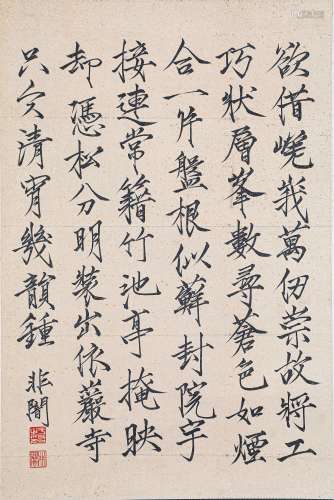 欲借嶢峩萬仞崇故將工
巧狀層峯數尋蒼色如煙
合一片盤根似蘚封院宇
接連常籍竹池亭掩映
却憑松分明裝出依巖寺
只欠清宵幾韻鍾
非闇